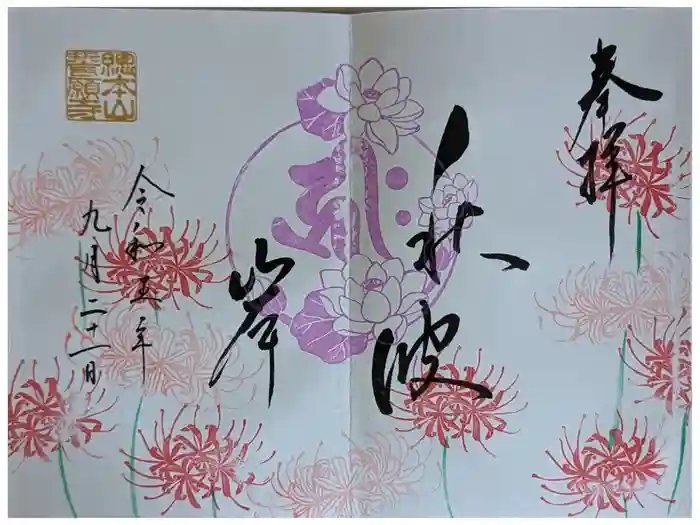 奉拝
秋彼
岸
令和五年
九月二十一日
總本山
誓願寺